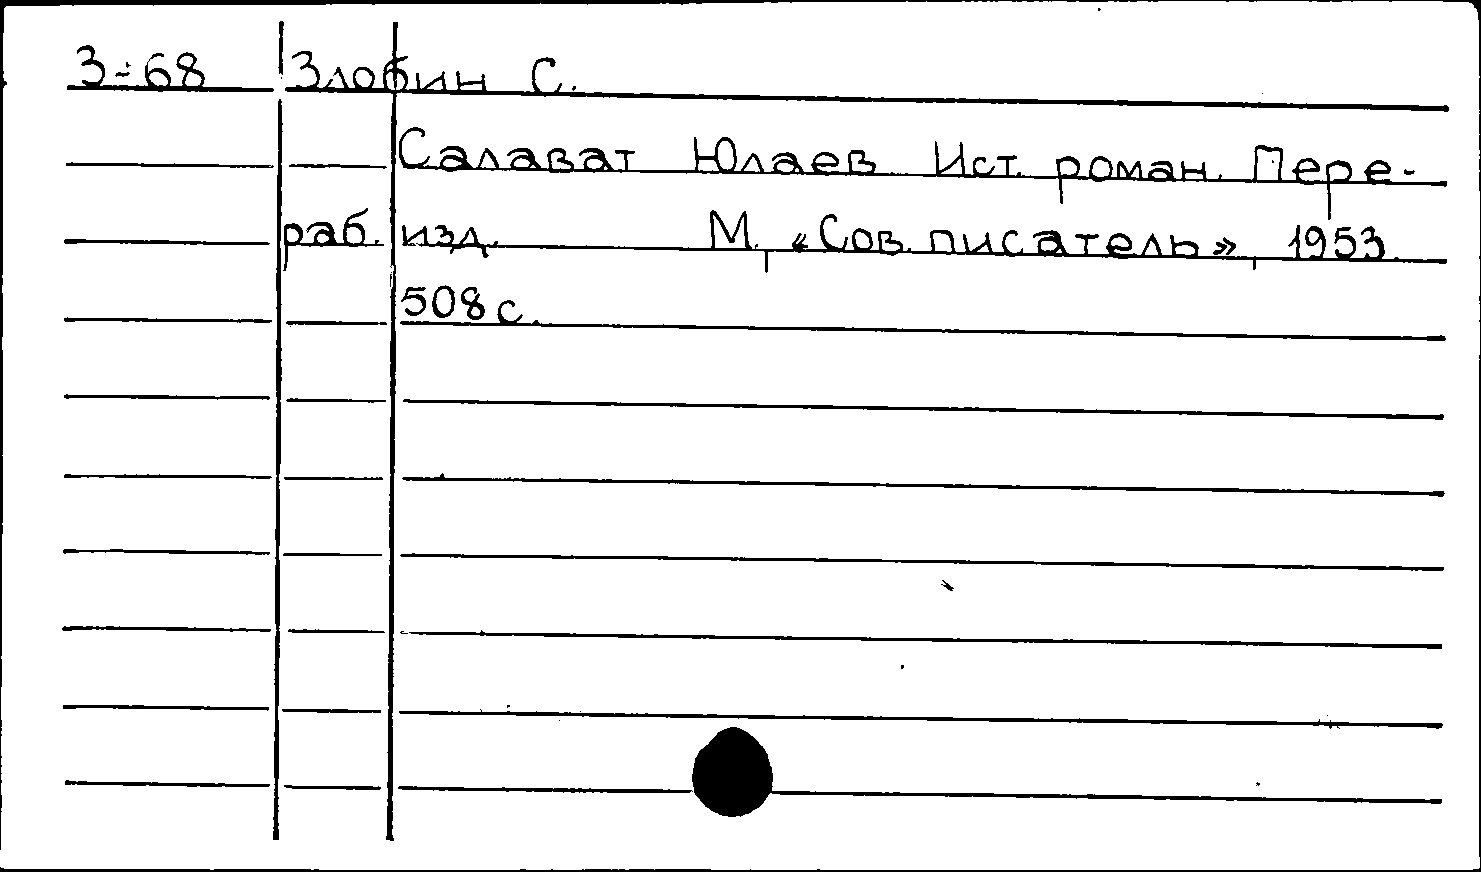 З-68 Злобин С.
Салават Юлаев. Ист. роман. Пере-
раб. изд. М., «Сов. писатель», 1953.
508 с.